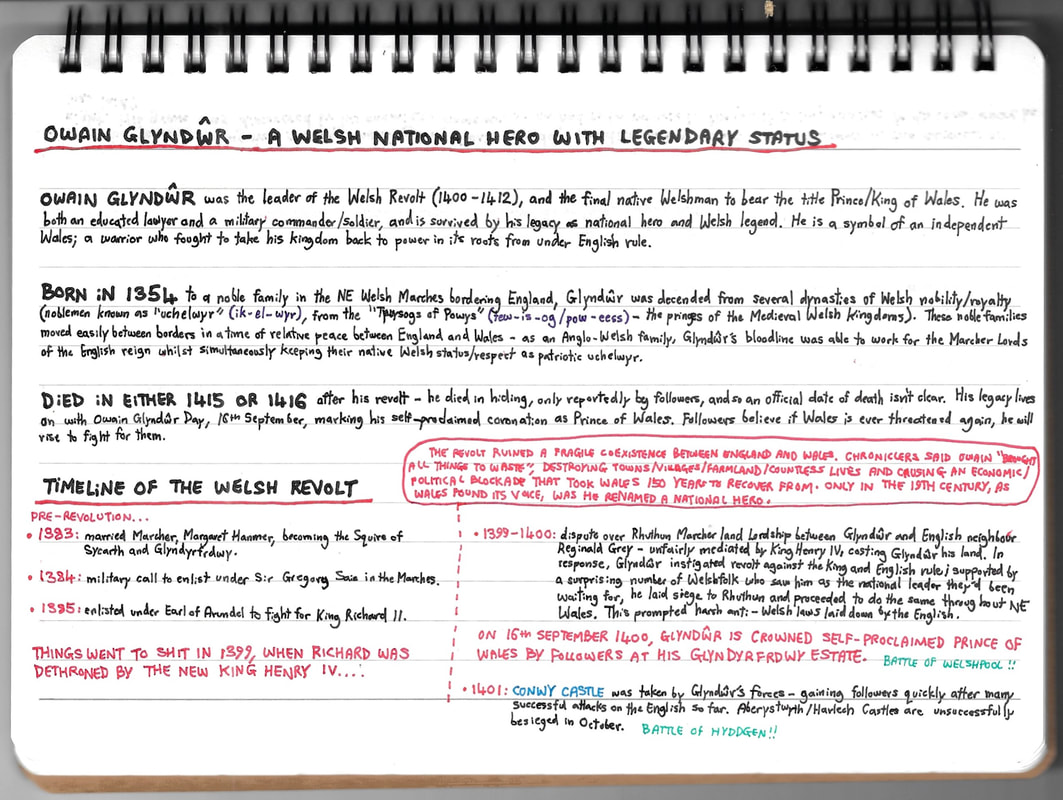 OWAIN GLYNDŴR - A WELSH NATIONAL HERO WITH LEGENDARY STATUS
OWAIN GLYNDŴR was the leader of the Welsh Revolt (1400-1412), and the final native Welshman to bear the title Prince/King of Wales. He was
both an educated lawyer and a military commander/soldier, and is survived by his legacy as national hero and Welsh legend. He is a symbol of an independent
Wales; a warrior who fought to take his kingdom back to power in its roots from under English rule.
BORN IN 1354 to a noble family in the NE Welsh Marches bordering England, Glyndŵr was decended from several dynasties of Welsh nobility/royalty
(noblemen known as "uchelwyr" (ik-el-wyr), from the "Tywysogs of Powys" (tew-is-og/pow-eess) - the princes of the Medieval Welsh Kingdoms). These noble families
moved easily between borders in a time of relative peace between England and Wales - as an Anglo-Welsh family, Glyndŵr's bloodline was able to work for the Marcher Lords
of the English reign whilst simultaneously keeping their native Welsh status/respect as patriotic uchelwyr.
DIED IN EITHER 1415 OR 1416 after his revolt - he died in hiding, only reportedly by followers, and so an official date of death isn't clear. His legacy lives
on with Owain Glyndŵr Day, 16th September, marking his self-proclaimed coronation as Prince of Wales. Followers believe if Wales is ever threatened again, he will
rise to fight for them.
THE REVOLT RUINED A FRAGILE COEXISTENCE BETWEEN ENGLAND AND WALES. CHRONICLERS SAID OWAIN "BROUGHT
ALL THINGS TO WASTE", DESTROYING TOWNS/VILLAGES/FARMLAND/COUNTLESS LIVES AND CAUSING AN ECONOMIC/
POLITICAL BLOCKADE THAT TOOK WALES 150 YEARS TO RECOVER FROM. ONLY IN THE 19TH CENTURY, AS
WALES FOUND ITS VOICE, WAS HE RENAMED A NATIONAL HERO.
TIMELINE OF THE WELSH REVOLT
PRE-REVOLUTION...
• 1383: married Marcher, Margaret Hanmer, becoming the Squire of
Sycarth and Glyndyrfrdwy.
• 1384: military call to enlist under Sir Gregory Sais in the Marches.
• 1385: enlisted under Earl of Arundel to fight for King Richard II.
THINGS WENT TO SHIT IN 1399, WHEN RICHARD WAS
DETHRONED BY THE NEW KING HENRY IV....
• 1399-1400: dispute over Rhuthun Marcher land Lordship between Glyndŵr and English neighbour
Reginald Grey - unfairly mediated by King Henry IV, costing Glyndŵr his land. In
response, Glyndŵr instigated revolt against the King and English rule; supported by
a surprising number of Welshfolk who saw him as the national leader they'd been
waiting for, he laid siege to Rhuthun and proceeded to do the same throughout NE
Wales. This prompted harsh anti-Welsh laws laid down by the English.
ON 16th SEPTEMBER 1400, GLYNDŴR IS CROWNED SELF-PROCLAIMED PRINCE OF
WALES BY FOLLOWERS AT HIS GLYNDYRFRDWY ESTATE. BATTLE OF WELSHPOOL!!
• 1401: CONWY CASTLE was taken by Glyndŵr's forces - gaining followers quickly after many
successful attacks on the English so far. Aberystwyth/Harlech Castles are unsuccessfully
besieged in October. BATTLE OF HYDDGEN!!